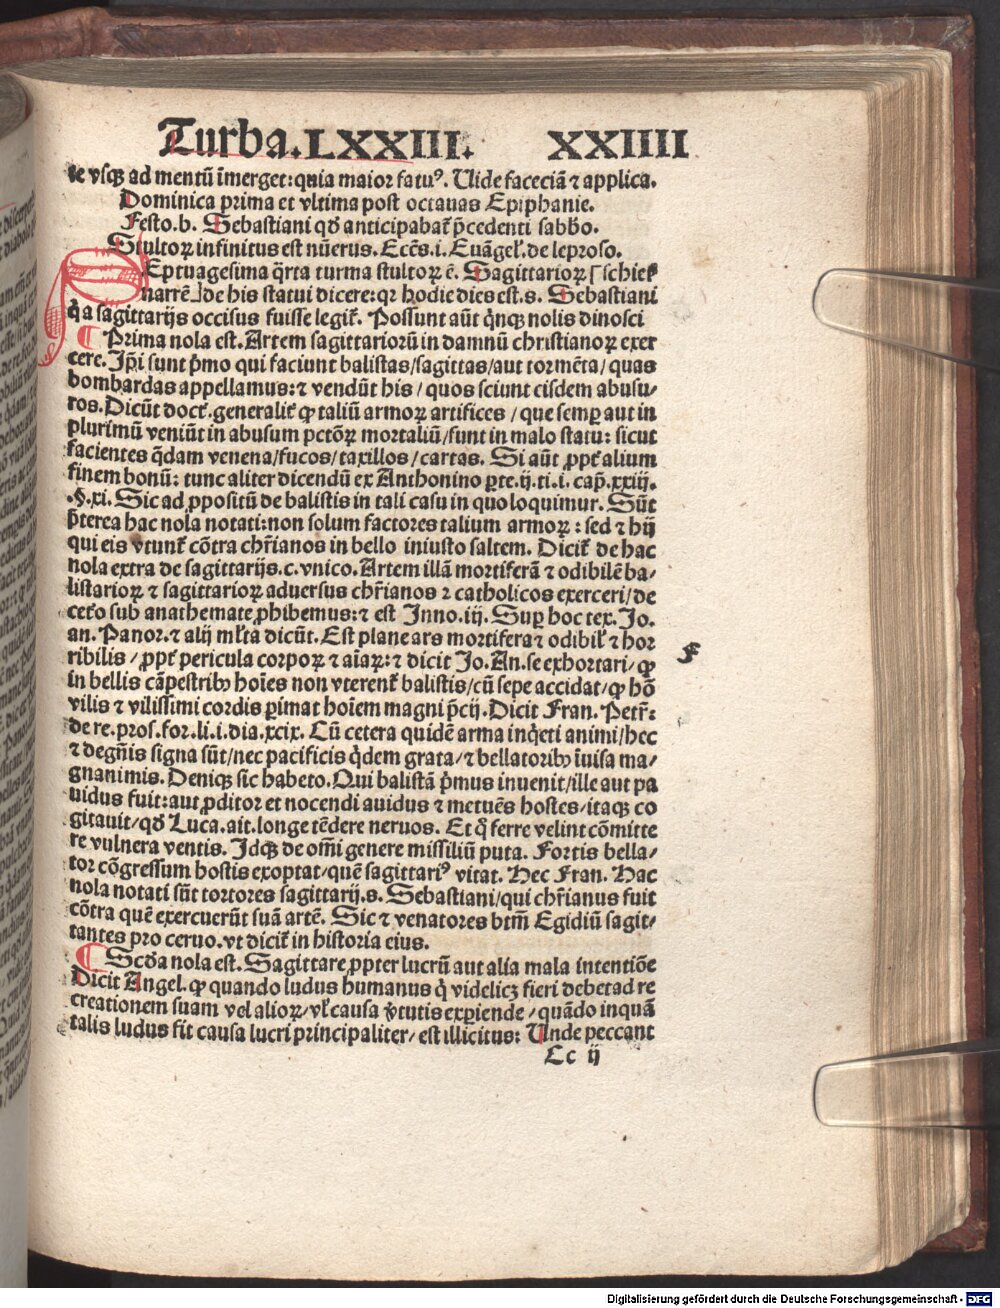 Turba. LXXIII. XXIIII
te vsqꝫ ad mentū īmerget: quia maior fatuꝰ. Uide faceciā ⁊ applica.
Dominica prima et vltima post octauas Epiphanie.
Festo. b. Sebastiani qđ anticipabat᷑ p̄cedenti sabb̄o.
Stultoꝝ infinitus est nūerus. Eccēs. i. Euāgel̓. de leproso.
Eptuagesima q̄rta turma stultoꝝ ē. Sagittarioꝝ [schieſ
narrē] de his statui dicere: qꝛ hodie dies est. s. Sebastiani
q̓a sagittarijs occisus fuisse legit᷑. Possunt aūt q̓nqꝫ nolis dinosci
¶ Prima nola est. Artem sagittariorū in damnū christianoꝝ exer
cere. Ip̄i sunt p̓mo qui faciunt balistas/sagittas/aut tormēta/quas
bombardas appellamus: ⁊ vendūt his / quos sciunt eisdem abusu-
ros. Dicūt doct̓. generalit̓ ꝙ taliū armoꝝ artifices / que semꝑ aut in
plurimū veniūt in abusum pctōꝝ mortaliū/sunt in malo statu: sicut
facientes q̄dam venena/fucos/taxillos/cartas. Si aūt ꝓpt̓ alium
finem bonū: tunc aliter dicendū ex Anthonino ꝑte. ij. ti. i. cap̄. xxiij.
.§. xi. Sic ad ꝓpositū de balistis in tali casu in quo loquimur. Sūt
p̄terea hac nola notati: non solum factores talium armoꝝ : sed ⁊ hij
qui eis vtunt᷑ cōtra chr̄ianos in bello iniusto saltem. Dicit᷑ de hac
nola extra de sagittarijs. c. vnico. Artem illā mortiferā ⁊ odibilē ba/
listarioꝝ ⁊ sagittarioꝝ aduersus chr̄ianos ⁊ catholicos exerceri/de
cet̓o sub anathemate ꝓhibemus: ⁊ est Inno. iij. Suꝑ hoc tex. Jo.
an. Panor. ⁊ alij ml̓ta dicūt. Est plane ars mortifera ⁊ odibil̓ ⁊ hor
ribilis / ꝓpt̓ pericula corpoꝝ ⁊ aīaꝝ: ⁊ dicit Jo. An. se exhortari/ ꝙ
in bellis cāpestribꝰ hoīes non vterent᷑ balistis/cū sepe accidat/ꝙ hō
vilis ⁊ vilissimi cordis ꝑimat hoīem magni p̓cij. Dicit Fran. Petr̄:
de re. pros. for. li. i. dia. xcix. Cū cetera quidē arma inq̓eti animi/hec
⁊ degn̄is signa sūt/nec pacificis q̓dem grata/⁊ bellatoribꝰ īuisa ma/
gnanimis. Deniqꝫ sic habeto. Qui balistā p̓mus inuenit/ille aut pa
uidus fuit: aut ꝓditor et nocendi auidus ⁊ metuēs hostes/itaqꝫ co
gitauit/qđ Luca. ait. longe tēdere neruos. Et q̊ ferre velint cōmitte
re vulnera ventis. Idqꝫ de om̄i genere missiliū puta. Fortis bella/
tor cōgressum hostis exoptat/quē sagittariꝰ vitat. Hec Fran. Hac
nola notati sūt tortores sagittarij. s. Sebastiani/qui chr̄ianus fuit
cōtra quē exercuerūt suā artē. Sic ⁊ venatores btm̄ Egidiū sagit/
tantes pro ceruo. vt dicit᷑ in historia eius.
¶ Scđa nola est. Sagittare ꝓpter lucrū aut alia mala intentiōe
Dicit Angel. ꝙ quando ludus humanus q̓ videlicꝫ fieri debet ad re
creationem suam vel alioꝝ/vl̓ causa v̓tutis exꝑiende / quādo inquā
talis ludus fit causa lucri principaliter/ est illicitus: Unde peccant
Cc ij
Digitalisierung gefördert durch die Deutsche Forschungsgemeinschaft - DFG